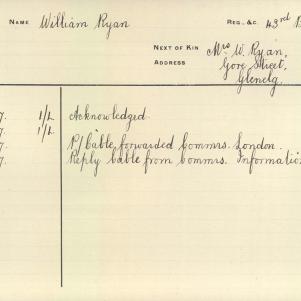 NAME William Ryan REG., &C. 43rd B
NEXT OF KIN Mrs W. Ryan,
ADDRESS Gore Street,
Glenelg
7. 1/L Acknowledged.
7. 1/L
7. Rp/Cable forwarded Commrs. London.
7. Reply Cable from Commrs. Informatio